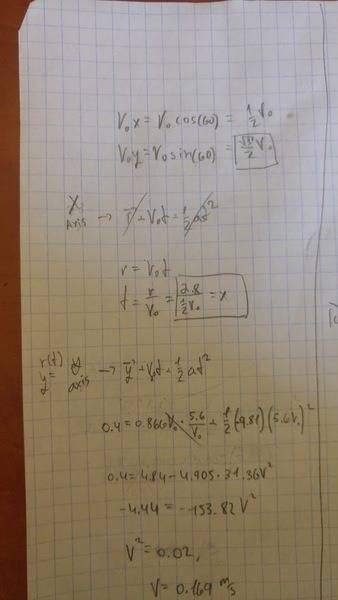 V₀x = V₀ cos(60) = 1/2 V₀
V₀y = V₀ sin(60) = √3/2 V₀
X axis → r⃗ + V₀t + 1/2 at²
r = V₀t
t = r/V₀ = 2.8/(1/2 V₀) = x
r(t) y = y axis → y⃗ + V₀t + 1/2 at²
0.4 = 0.866V₀ · 5.6/V₀ + 1/2 (-9.81) (5.6V₀)²
0.4 = 4.84 - 4.905 · 31.36V²
-4.44 = -153.82 V²
V² = 0.02,
V = 0.169 m/s